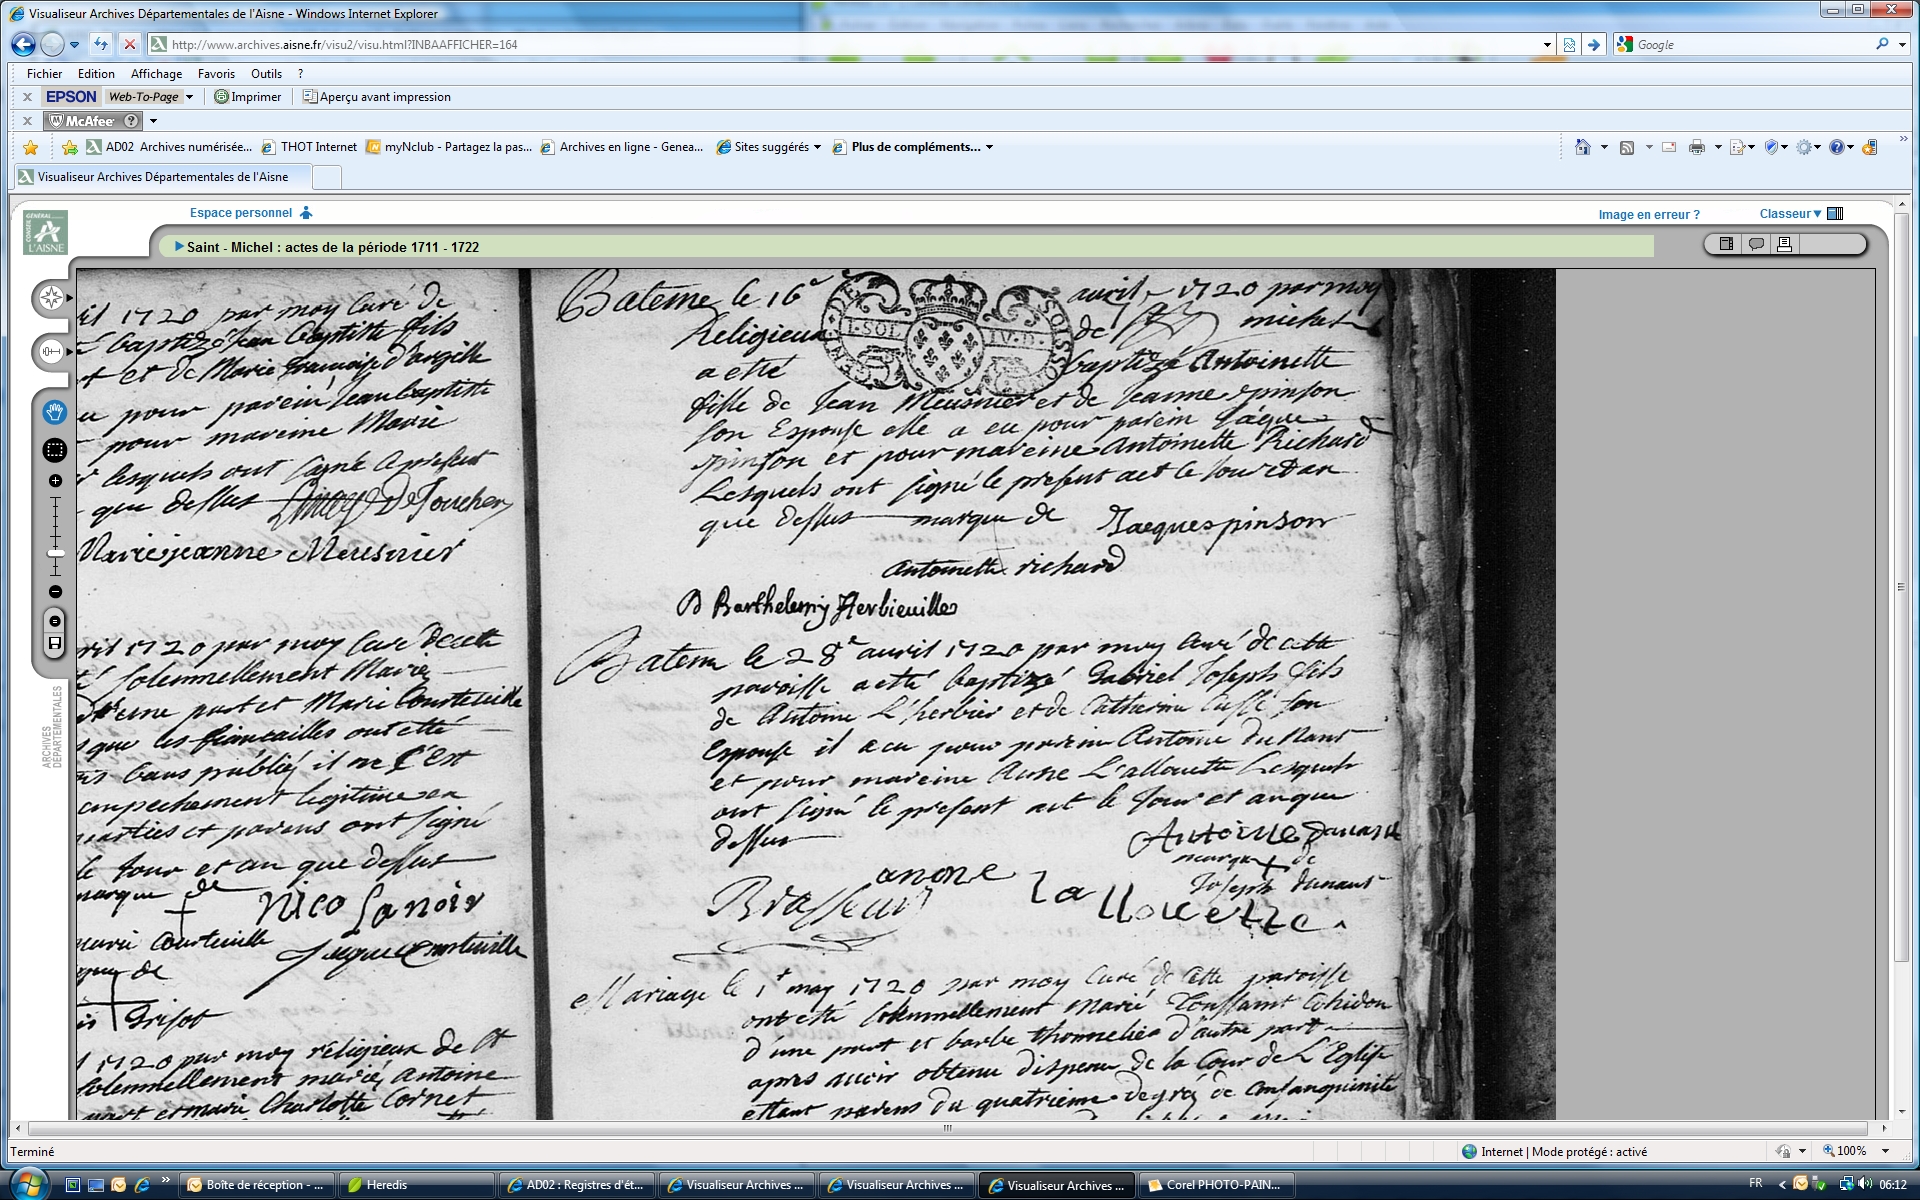 Visualiseur Archives Départementales de l'Aisne - Windows Internet Explorer
http://www.archives.aisne.fr/visu2/visu.html?INBAAFFICHER=164
Google
Fichier Edition Affichage Favoris Outils ?
x EPSON Web-To-Page Imprimer Aperçu avant impression
x McAfee ?
AD02 Archives numérisée... THOT Internet myNclub - Partagez la pas... Archives en ligne - Genea... Sites suggérés Plus de compléments...
Visualiseur Archives Départementales de l'Aisne
Espace personnel Image en erreur ? Classeur
GÉNÉRAL
CONSEIL
L'AISNE
Saint - Michel : actes de la période 1711 - 1722
ARCHIVES
DÉPARTEMENTALES
ril 1720 par moy Curé de
baptizé Jean Baptiste fils
et de Marie françoise d'argille
eu pour parein Jean baptiste
pour mareine Marie
lesquels ont signé le present
que dessus
Marie jeanne Meusnier
vril 1720 par moy Curé de cette
solemnellement Marié
d'une part et Marie Courteuille
que les fiancailles ont etté
bans publiéz il ne s'est
empechement legitime en
parties et parens ont signé
le Jour et an que dessus
marque de
Nico Lanoir
marie Courteuille
Jacque Courteuille
de
Grisot
1720 par moy réligieux de St
solemnellement mariéz Antoine
part et marie Charlotte Cornet
Bateme le 16e avril 1720 par moy
Religieux de St michel
a etté baptizé Antoinette
fille de Jean Meusnier et de Jeanne pinson
son Espouse elle a eu pour parein Jacque
pinson et pour mareine Antoinette Richard
Lesquels ont signé le present act le Jour et an
que dessus marque de Jacques pinson
antoinette richard
D Barthelemy Herbieuille
GENER. DE SOISSONS
I. SOL IV. D.
Batem le 28e auril 1720 par moy Curé de cette
paroisse a etté baptizé Gabriel Joseph fils
de Antoine L'herbier et de Catherine son
Espouse il a eu pour parein Antoine du Nant
et pour mareine Anne L'allouette Lesquels
ont signé le present act le Jour et an que
dessus
Antoine dunant
marque de
Joseph dunant
anone la llouette
Brasseur
Mariage le 1r may 1720 par moy Curé de cette paroisse
ont etté solemnellement Marié Toussaint Cohidon
d'une part et barbe thonnelier d'autre part
apres auoir obtenu dispense de la Cour de L'Eglise
ettant parens du quatrieme degréz de consanguinité
Terminé
Internet | Mode protégé : activé
100%
Boîte de réception - ... Heredis AD02 : Registres d'ét... Visualiseur Archives ... Visualiseur Archives ... Visualiseur Archives ... Corel PHOTO-PAIN... FR 06:12